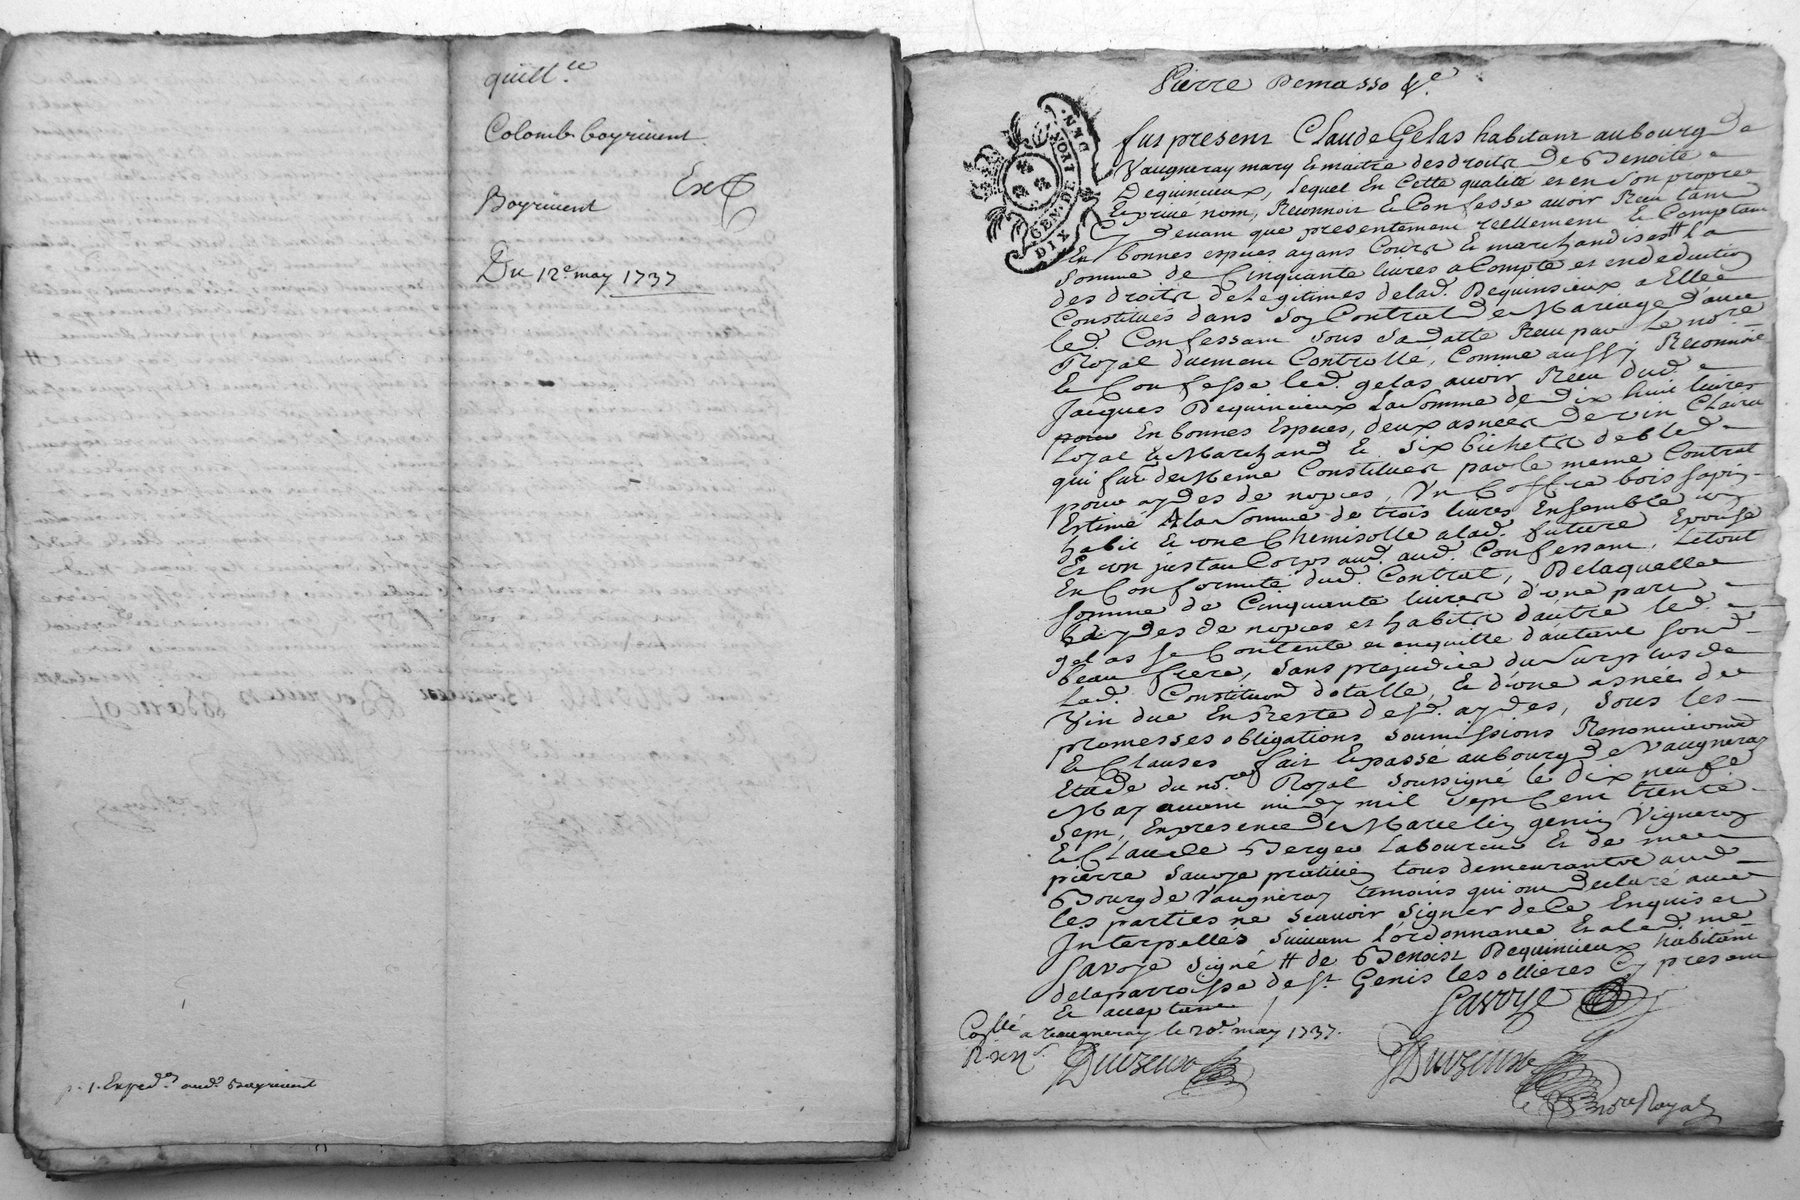 quitt.ce
Colomb Boyriuent
Ex
Boyriuent
Du 12e may 1737
p. 1. Exped.on aud. Boyriuent
Pierre Demasso &c.
GEN. DE LYON
DIX DEN.
fut present Claude Gelas habitant au bourg de
Vaugneray mary & maitre des droits de Benoite
Dequincieux, lequel En Cette qualité et en son propre
& privé nom, Reconnoit & Confesse auoir Receu tant
deuant que presentement reellement & Comptant
En bonnes especes ayans Cours & marchandises # la
somme de Cinquante liures a Compte et en deduction
des droits de Legitimes de lad. Dequinsieux a Elle
Constitués dans son Contrat de Mariage d'auec
led. Confessant sous sa datte Receu par le no.re
Royal duement Controllé, Comme aussy Reconnoit
& Confesse led. gelas auoir Receu dud.
Jacques Dequincieux la somme de dix huit liures
En bonnes Especes, deux asnées de vin Clair
Loyal & Marchand & six bichets de bled
qui fut de Meme Constituer par le meme Contrat
pour aydes de nopces, Vn Coffre bois sapin
Estimé A la somme de trois liures Ensemble un
habit & une Chemisolle a lad. future Epouse
Et un justau Corps aud. Confessant, Le tout
En Conformité dud. Contrat, De laquelle
somme de Cinquante liures d'une part
& aydes de nopces et habits d'autre led.
gelas se Contente et en quitte d'autant sond.
beau frere, sans prejudice du surplus de
Lad. Constitution dotalle, & d'une asnée de
Vin due En Reste desd. aydes, sous les
promesses obligations soumissions Renonciations
& Clauses fait & passé au bourg de Vaugneray
Etude du no.re Royal soussigné le dix neufe
May auant midy mil sept Cent trente
sept, En presence de Marcelin genin Vigneron
& Claude Berger Laboureur Et de me
pierre sauoye praticien tous demeurants aud.
Bourg de Vaugneray temoins qui ont declaré auec
les parties ne scauoir signer de Ce Enquis et
Interpellés suiuant l'ordonnance Et a led. me
Savoye signé # de Benoist Dequincieux habitant
de la parroisse de St Genis les ollieres Cy present
& acceptant
Savoye
Co.llé a vaugneray le 20e may 1737.
no.re Royal